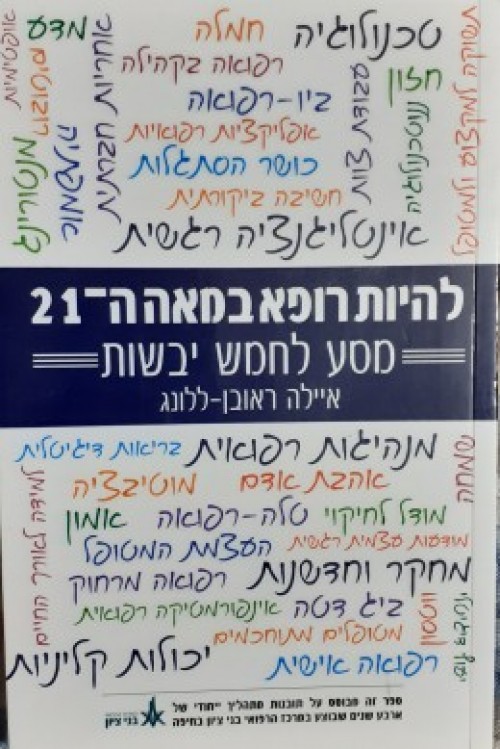 טכנולוגיה
חמלה
מדע
אופטימיות
תשוקה למקצוע ולמטופל
רפואה בקהילה
אחריות חברתית
חזון
ביו-רפואה
עבודת צוות
ננוטכנולוגיה
אפליקציות רפואיות
כושר הסתגלות
מנטורינג
חשיבה ביקורתית
אינטליגנציה רגשית
להיות רופא במאה ה-21
מסע לחמש יבשות
איילה ראובן-ללונג
מנהיגות רפואית
בריאות דיגיטלית
שמחה
אהבת אדם
מוטיבציה
למידה לאורך החיים
מודל לחיקוי
טלה-רפואה
אמון
מודעות עצמית רגשית
העצמת המטופל
מחקר וחדשנות
רפואה מרחוק
ביג דטה
אינפורמטיקה רפואית
ווטסון
מטופלים מתוחכמים
יכולות קליניות
רפואה אישית
ספר זה מבוסס על תובנות מתהליך ייחודי של
ארבע שנים שבוצע במרכז הרפואי בני ציון בחיפה
בני ציון